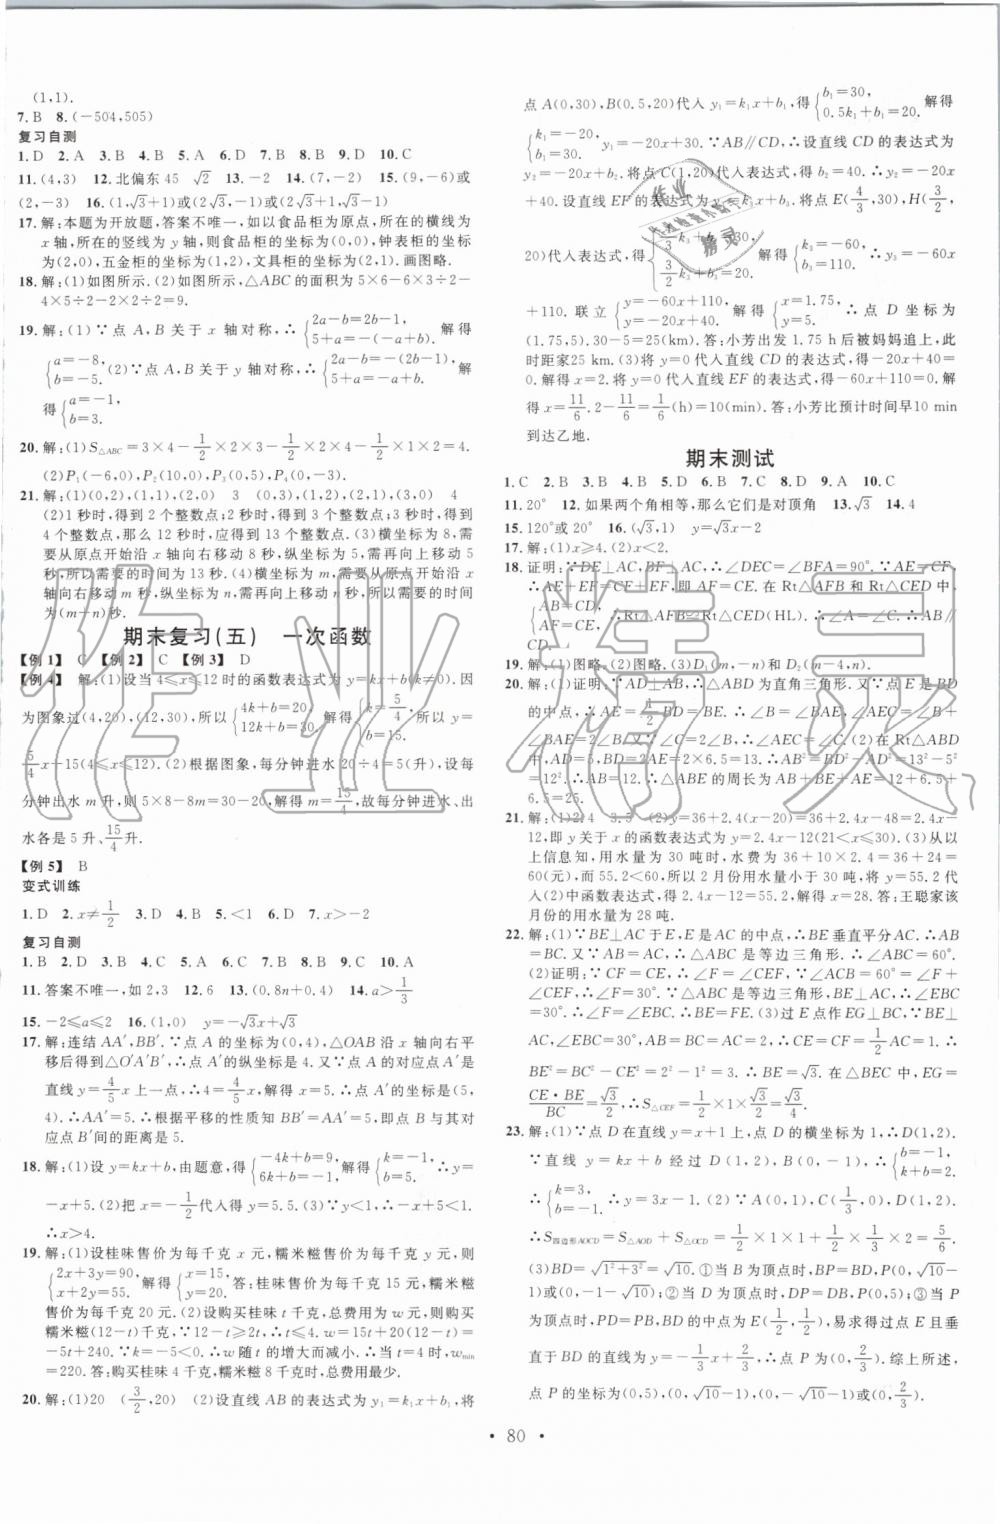 (1,1).
7.B 8.(-504,505)
复习自测
1.D 2.A 3.B 4.B 5.A 6.D 7.B 8.B 9.D 10.C
11.(4,3) 12.北偏东45 √2 13.-2 14.(7,-2) 15.(9,-6)或
(2,-6) 16.(1,√3+1)或(2,√3-1)或(2,-√3-1)
17.解:本题为开放题,答案不唯一,如以食品柜为原点,所在的横线为
x轴,所在的竖线为y轴,则食品柜的坐标为(0,0),钟表柜的坐标
为(2,0),五金柜的坐标为(2,1),文具柜的坐标为(1,2).画图略.
18.解:(1)如图所示.(2)如图所示,△ABC的面积为5×6-6×3÷2-
4×5÷2-1×2÷2=9.
19.解:(1)∵点A,B关于x轴对称,∴{2a-b=2b-1, 5+a=-(-a+b).解得
{a=-8, b=-5.(2)∵点A,B关于y轴对称,∴{2a-b=-(2b-1), 5+a=-a+b.解
得{a=-1, b=3.
20.解:(1)S△ABC=3×4-1/2×2×3-1/2×2×4-1/2×1×2=4.
(2)P₁(-6,0),P₂(10,0),P₃(0,5),P₄(0,-3).
21.解:(1)(0,2),(1,1),(2,0) 3 (0,3),(1,2),(2,1),(3,0) 4
(2)1秒时,得到2个整数点;2秒时,得到3个整数点;3秒时,得到
4个整数点,那么12秒时,应得到13个整数点.(3)横坐标为8,需
要从原点开始沿x轴向右移动8秒,纵坐标为5,需再向上移动5
秒,所以需要的时间为13秒.(4)横坐标为m,需要从原点开始沿x
轴向右移动m秒,纵坐标为n,需再向上移动n秒,所以需要的时间为
(m+n)秒.
期末复习(五) 一次函数
【例1】 C 【例2】 C 【例3】 D
【例4】 解:(1)设当4≤x≤12时的函数表达式为y=kx+b(k≠0).因
为图象过(4,20),(12,30),所以{4k+b=20, 12k+b=30.解得{k=5/4, b=15.所以y=
5/4x+15(4≤x≤12).(2)根据图象,每分钟进水20÷4=5(升),设每
分钟出水m升,则5×8-8m=30-20,解得m=15/4,故每分钟进水、出
水各是5升、15/4升.
【例5】 B
变式训练
1.D 2.x≠1/2 3.D 4.B 5.<1 6.D 7.x>-2
复习自测
1.B 2.D 3.A 4.C 5.D 6.B 7.D 8.B 9.C 10.A
11.答案不唯一,如2,3 12.6 13.(0.8n+0.4) 14.a>1/3
15.-2≤a≤2 16.(1,0) y=-√3x+√3
17.解:连结AA′,BB′.∵点A的坐标为(0,4),△OAB沿x轴向右平
移后得到△O′A′B′,∴点A′的纵坐标是4.又∵点A的对应点A′是
直线y=4/5x上一点,∴4=4/5x,解得x=5.∴点A′的坐标是(5,
4).∴AA′=5.∴根据平移的性质知BB′=AA′=5,即点B与其对
应点B′间的距离是5.
18.解:(1)设y=kx+b,由题意,得{-4k+b=9, 6k+b=-1.解得{k=-1, b=5.∴y=
-x+5.(2)把x=-1/2代入得y=5.5.(3)∵y<1,∴-x+5<1.
∴x>4.
19.解:(1)设桂味售价为每千克x元,糯米糍售价为每千克y元,则
{2x+3y=90, x+2y=55.解得{x=15, y=20.答:桂味售价为每千克15元,糯米糍
售价为每千克20元.(2)设购买桂味t千克,总费用为w元,则购买
糯米糍(12-t)千克,∵12-t≥2t,∴t≤4.w=15t+20(12-t)=
-5t+240.∵-5<0,∴w随t的增大而减小.∴当t=4时,wmin
=220.答:购买桂味4千克,糯米糍8千克时,总费用最少.
20.解:(1)20 (3/2,20) (2)设直线AB的表达式为y₁=k₁x+b₁,将
点A(0,30),B(0.5,20)代入y₁=k₁x+b₁,得{b₁=30, 0.5k₁+b₁=20.解得
{k₁=-20, b₁=30.∴y₁=-20x+30.∵AB∥CD,∴设直线CD的表达式为
y₂=-20x+b₂.将点C(1,20)代入表达式,得b₂=40,∴y₂=-20x
+40.设直线EF的表达式为y₃=k₃x+b₃.将点E(4/3,30),H(3/2,
20)代入表达式,得{4/3k₃+b₃=30, 3/2k₃+b₃=20.解得{k₃=-60, b₃=110.∴y₃=-60x
+110.联立{y=-60x+110, y=-20x+40.解得{x=1.75, y=5.∴点D坐标为
(1.75,5).30-5=25(km).答:小芳出发1.75h后被妈妈追上,此
时距家25 km.(3)将y=0代入直线CD的表达式,得-20x+40=0.
解得x=2.将y=0代入直线EF的表达式,得-60x+110=0.解
得x=11/6.2-11/6=1/6(h)=10(min).答:小芳比预计时间早10 min
到达乙地.
期末测试
1.C 2.B 3.B 4.B 5.D 6.B 7.C 8.D 9.A 10.C
11.20° 12.如果两个角相等,那么它们是对顶角 13.√3 14.4
15.120°或20° 16.(√3,1) y=√3x-2
17.解:(1)x≥4.(2)x<2.
18.证明:∵DE⊥AC,BF⊥AC,∴∠DEC=∠BFA=90°.∵AE=CF,
∴AE+EF=CE+EF,即AF=CE.在Rt△AFB和Rt△CED中,
∴Rt△AFB≌Rt△CED(HL).∴∠A=∠C.∴AB∥CD.
19.解:(1)图略.(2)图略.(3)D₁(m,-n)和D₂(5-m,4-n).
20.解:(1)证明:∵AD⊥AB,∴△ABD为直角三角形.又∵点E是BD
的中点,∴AE=1/2BD=BE.∴∠B=∠BAE,∠AEC=∠B+
∠BAE=2∠B.又∵∠C=2∠B,∴∠AEC=∠C.(2)在Rt△ABD
中,BD=2AE=2×6.5=13,∴AB²=BD²-AD²=13²-5²
=12².∴AB=12.∴△ABE的周长为AB+BE+AE=12+6.5+
6.5=25.
21.解:(1)2.4 3.5 (2)y=2.4(x-20)+36=2.4x-
12,即y关于x的函数表达式为y=2.4x-12(21<x≤30).(3)从以
上信息知,用水量为30吨时,水费为36+10×2.4=36+24=
60(元),而55.2<60,所以2月份用水量小于30吨,将y=55.2代
入(2)中函数表达式,得2.4x-12=55.2,解得x=28.答:王聪家该
月份的用水量为28吨.
22.解:(1)∵BE⊥AC于E,E是AC的中点,∴BE垂直平分AC.∴AB
=BC.又∵AB=AC,∴△ABC是等边三角形.∴∠ABC=60°.
(2)证明:∵CF=CE,∴∠F=∠CEF.又∵∠ACB=60°=∠F+
∠CEF,∴∠F=30°.∵△ABC是等边三角形,BE⊥AC,∴∠EBC
=30°.∴∠F=∠EBC.∴BE=EF.(3)过E点作EG⊥BC,∵BE⊥
AC,∠EBC=30°,AB=BC=AC=2,∴EC=CF=1/2AC=1.∴
BE²=BC²-CE²=2²-1²=3.∴BE=√3.在△BEC中,EG=
CE·BE/BC=√3/2,∴S△CEF=1/2×1×√3/2=√3/4.
23.解:(1)∵点D在直线y=x+1上,点D的横坐标为1,∴D(1,2).
∵直线y=kx+b经过D(1,2),B(0,-1),∴{b=-1, k+b=2.
∴{k=3, b=-1.∴y=3x-1.(2)∵A(0,1),C(1/3,0),D(1,2).
∴S四边形AOCD=S△AOD+S△OCD=1/2×1×1+1/2×1/3×2=5/6.
(3)BD=√(1²+3²)=√10.①当B为顶点时,BP=BD,P(0,√10-
1)或(0,-1-√10);②当D为顶点时,DP=DB,P(0,5);③当P
为顶点时,PD=PB,BD的中点为E(1/2,1/2),易求得过点E且垂
直于BD的直线为y=-1/3x+2/3,∴点P为(0,2/3).综上所述,
点P的坐标为(0,5),(0,√10-1),(0,-√10-1)或(0,2/3).
· 80 ·